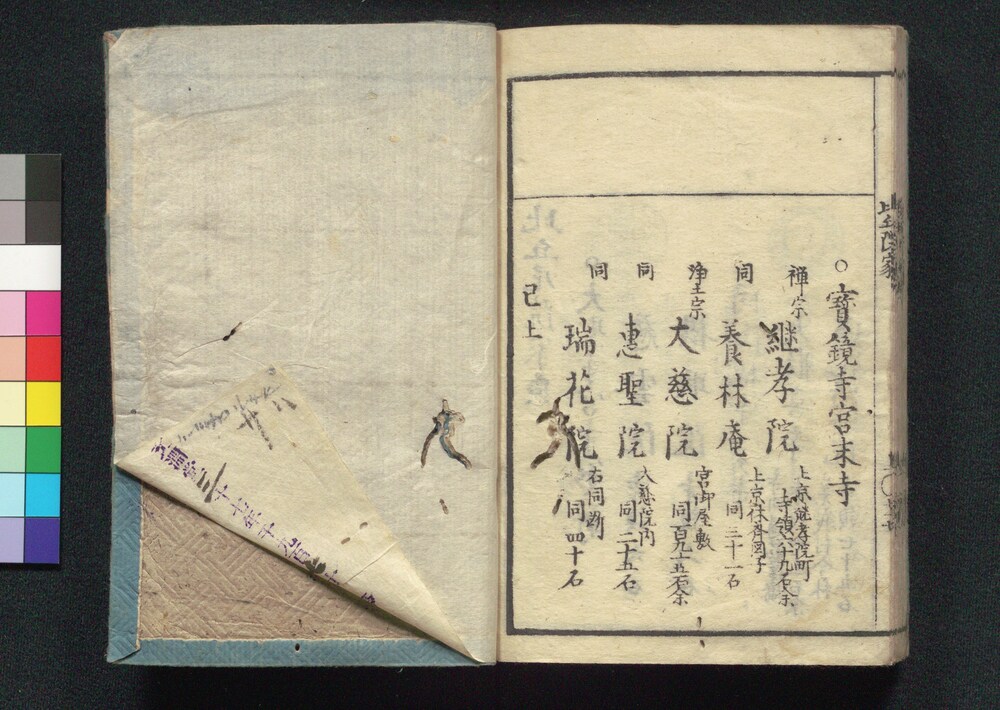 ○寶鏡寺宮末寺
禅宗 継孝院 上京継孝院町 寺領六十九石余
同 養林庵 上京休斉図子 同二十一石
浄土宗 大慈院 宮御屋敷 同百九十五石余
同 恵聖院 大慈院内 同二十五石
同 瑞花院 右同断 同四十石
已上
比丘院家